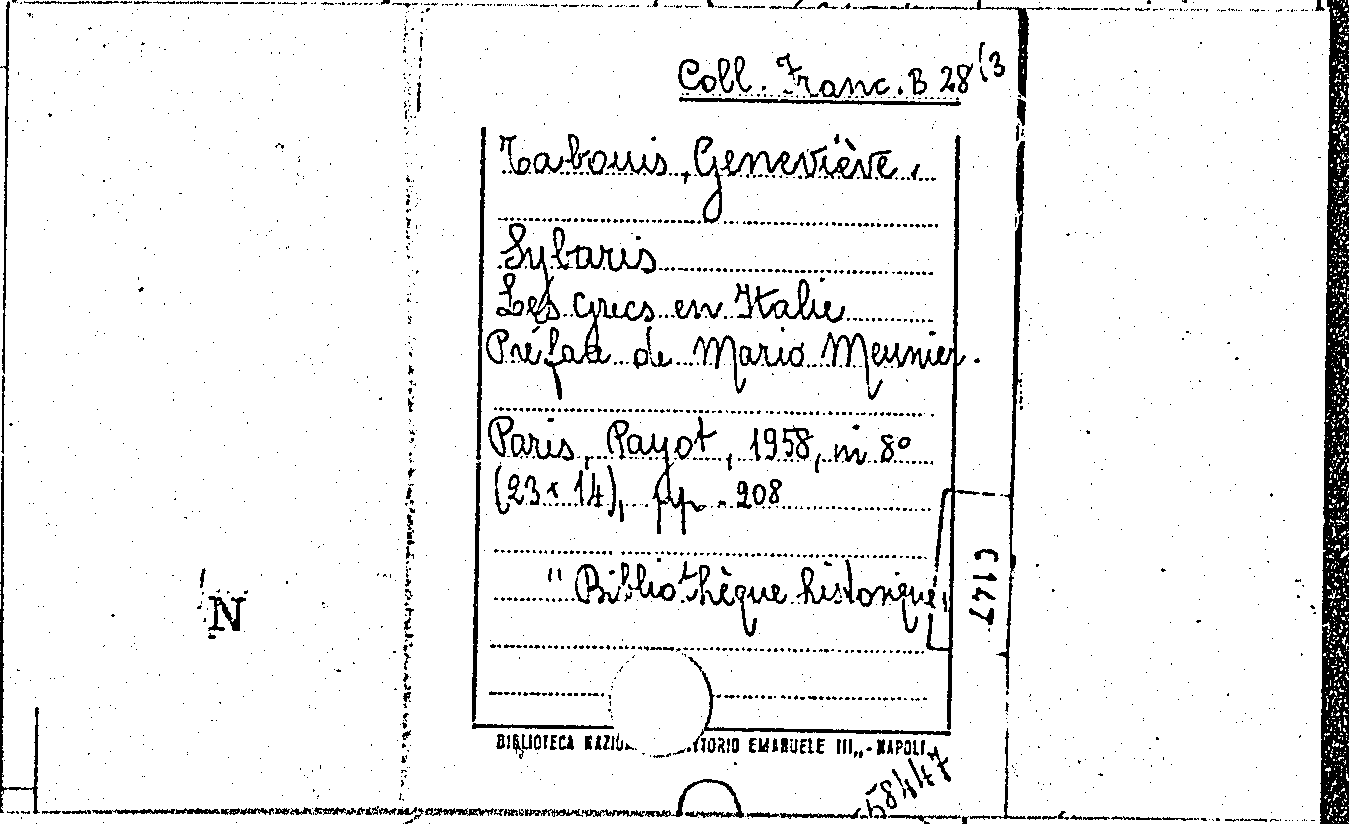 Coll. Franc. B 28(3
Tabouis, Geneviève.
Sybaris
Les grecs en Italie
Préface de Mario Meunier.
Paris, Payot, 1958, in 8°
(23x14), pp. 208
"Bibliothèque historique"
C 147
N
BIBLIOTECA EMANUELE III„-NAPOLI
58447